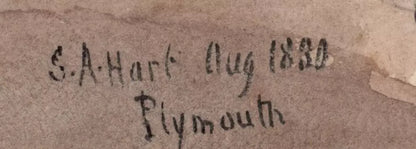 S.A. Hart Aug 1880
Plymouth